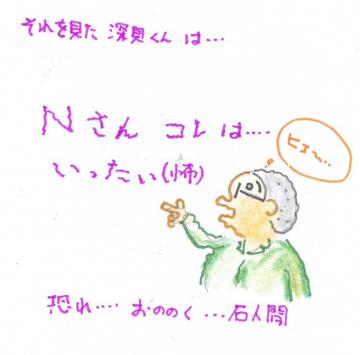 それを見た 深見くん は…
Nさん コレは‥‥
いったい(怖)
ヒエ〜…
恐れ‥‥ おののく …石人間